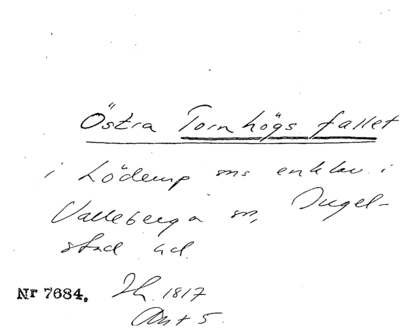 Östra Tornhögs fallet
i Löderup sns enklav i
Valleberga sn, Ingel-
stad hd.
Nr 7684. Sk. 1817
Akt 5.